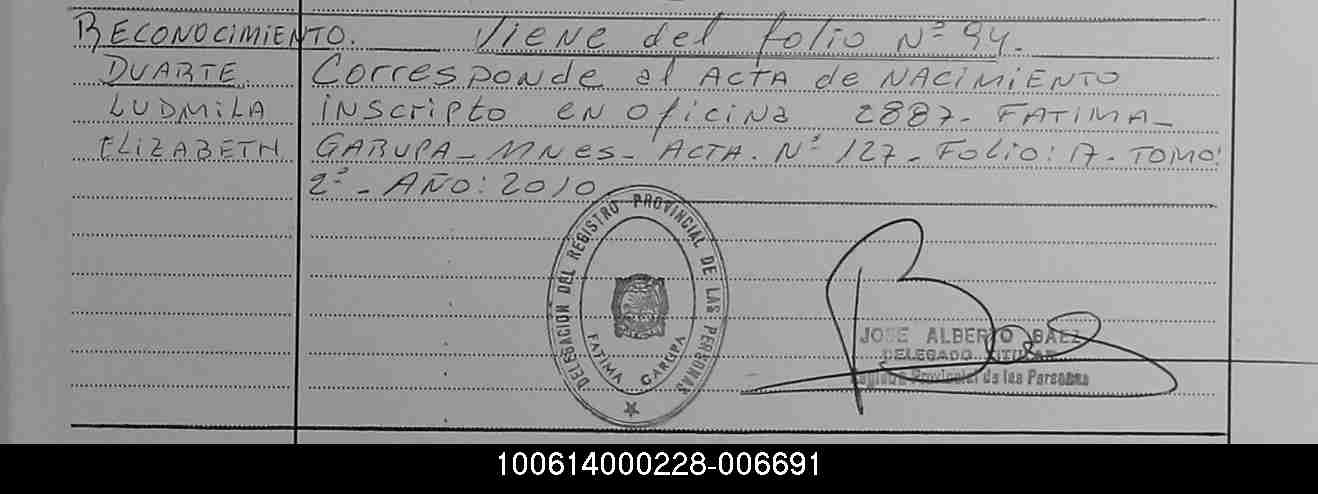 RECONOCIMIENTO. Viene del folio Nº 94.
DUARTE Corresponde al ACTA de NACIMIENTO
LUDMILA inscripto en oficina 2887- FATIMA-
ELIZABETH GARUPA- MNES- ACTA. Nº 127- FOLIO: 17- TOMO:
2º- AÑO: 2010
DELEGACION DEL REGISTRO PROVINCIAL DE LAS PERSONAS
FATIMA GARUPA
JOSE ALBERTO BAEZ
DELEGADO TITULAR
Registro Provincial de las Personas
100614000228-006691